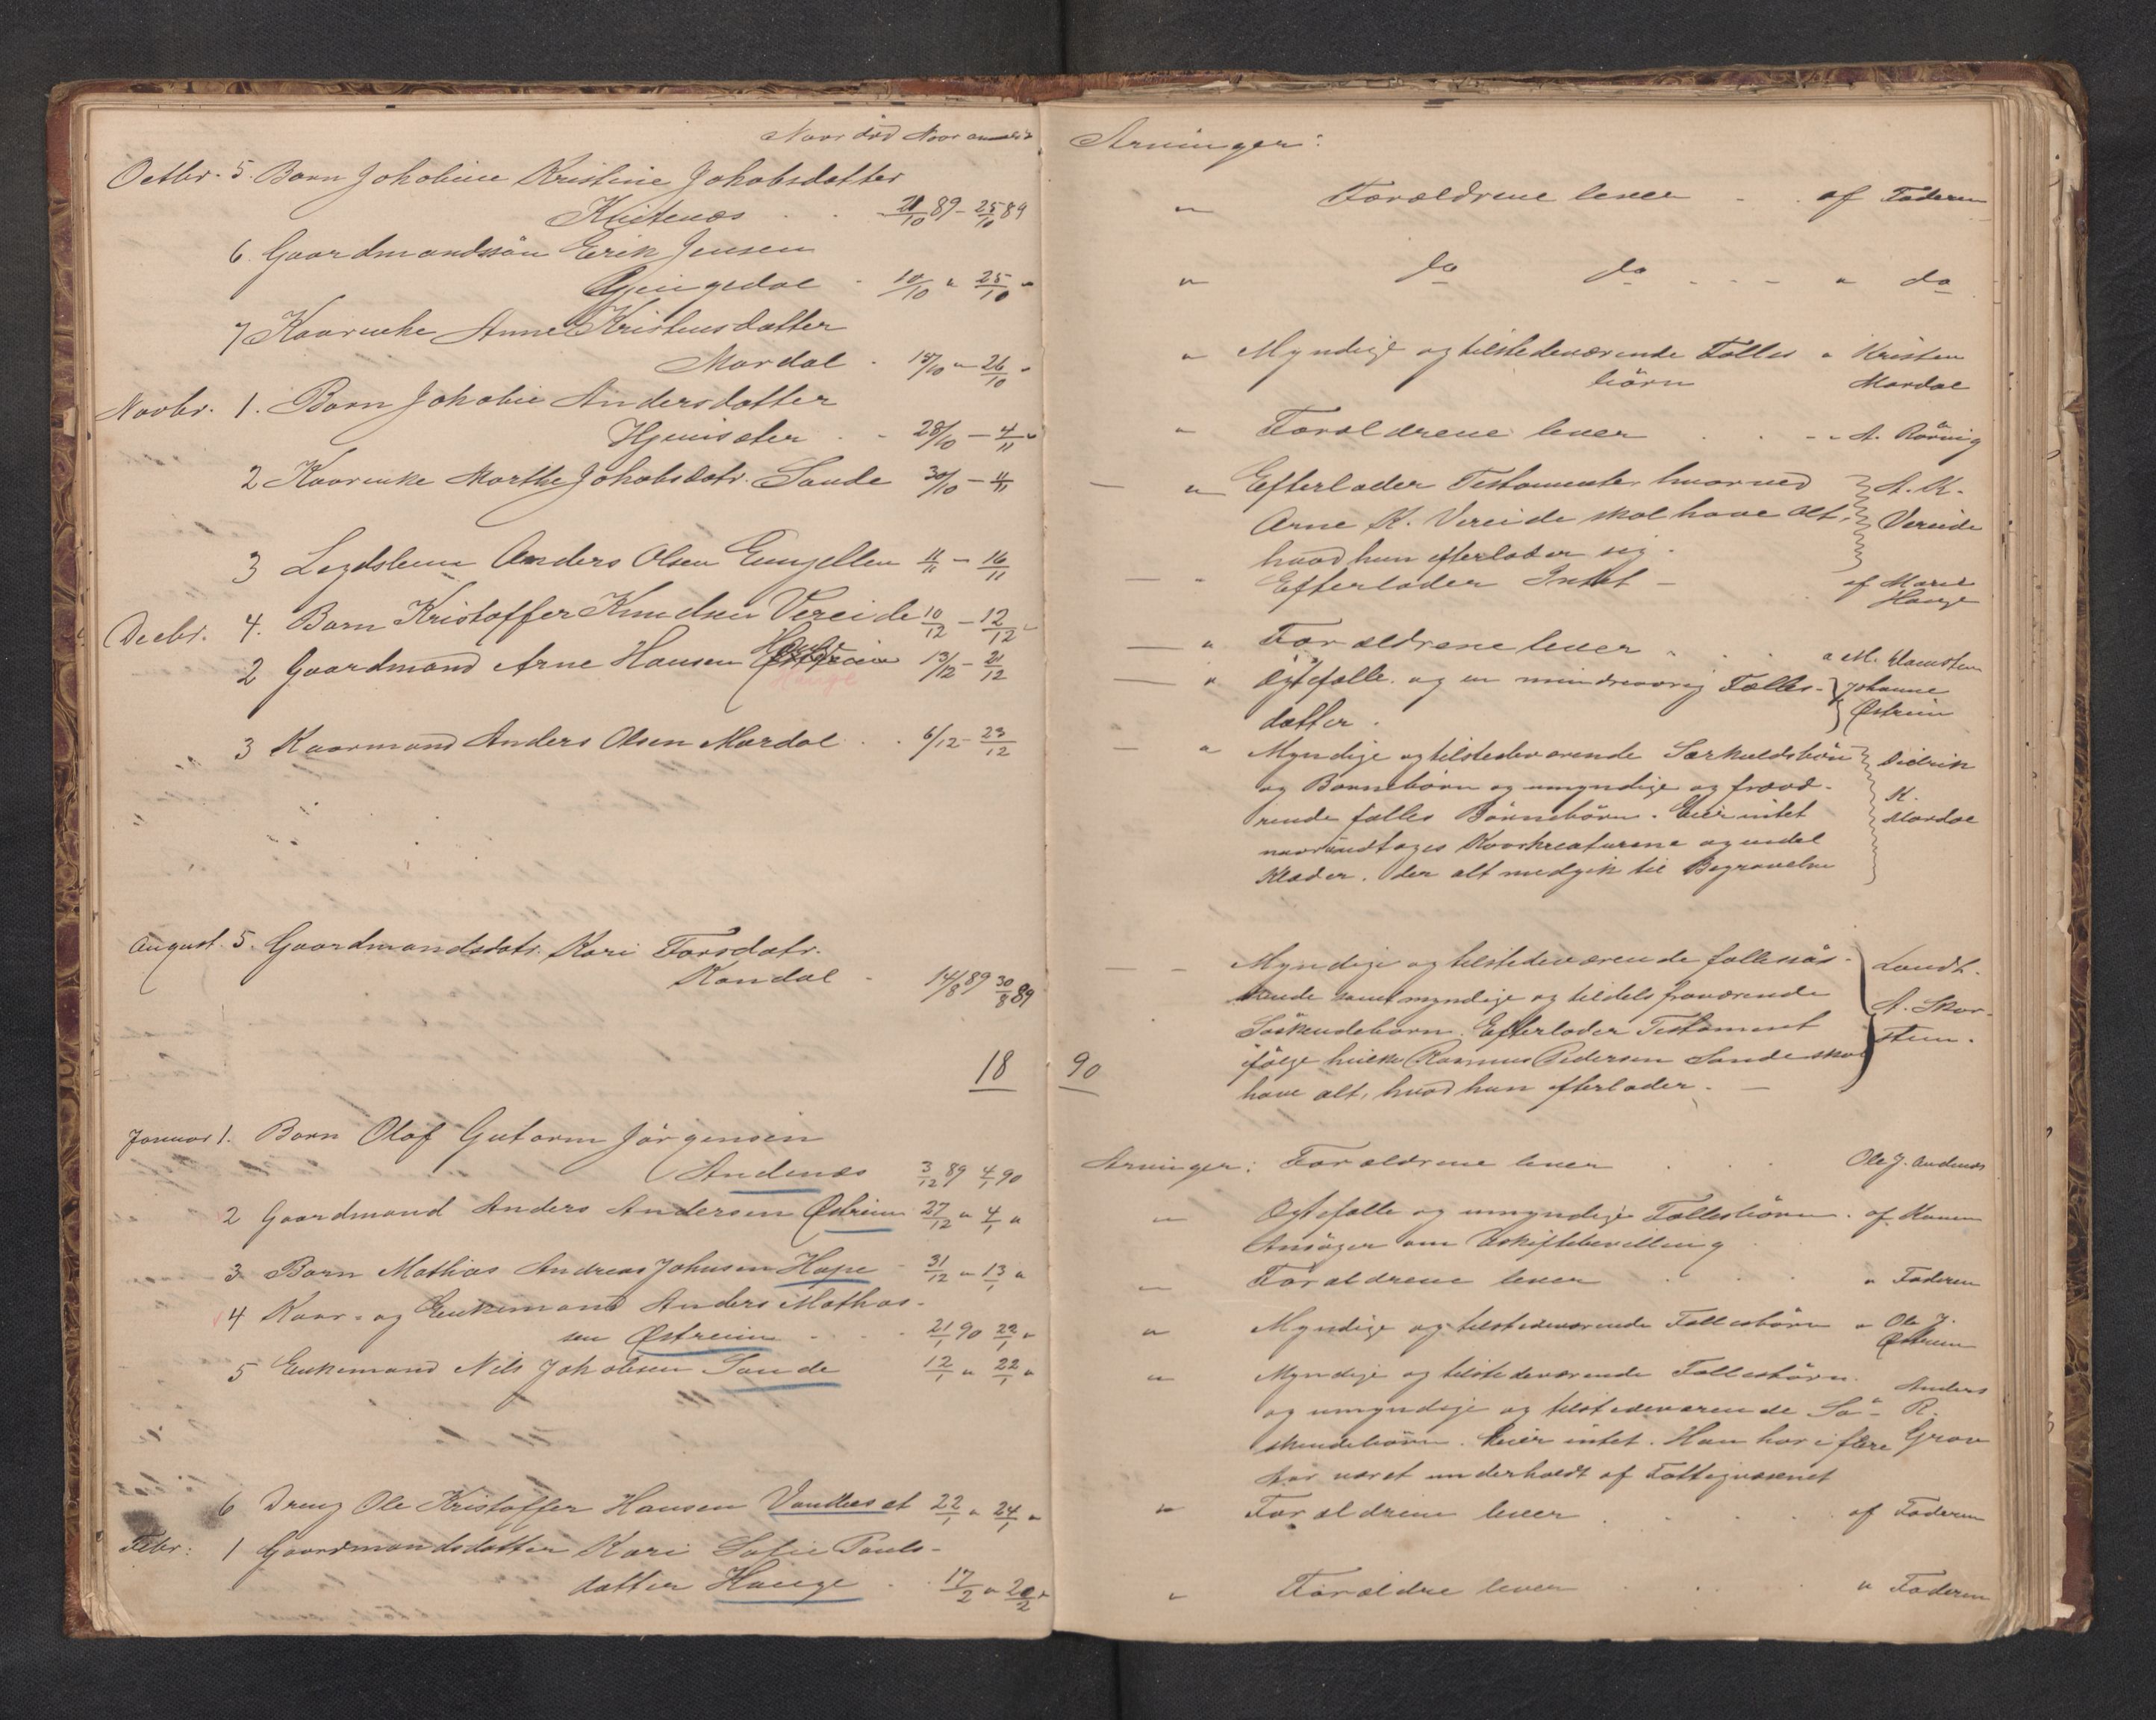 Naar død Naar anmeldt
Octbr. 5. Barn Jakobine Kristine Jakobsdatter
Kvitenæs . . 21/10 89 – 25/10 89
6. Gaardmandssøn Erik Jensen
Gjengedal . 10/10 " 25/10 "
7 Kaarenke Anne Kristensdatter
Mardal . 18/10 " 26/10 "
Novbr. 1. Barn Jakobie Andersdatter
Hjemsæter . . 28/10 – 4/11 "
2 Kaarenke Marthe Jakobsdatr. Sande 30/10 – 4/11
3 Lægdslem Anders Olsen 11/11 – 16/11
Decbr. 4. Barn Kristoffer Knudsen Vereide 10/12 – 12/12 "
2 Gaardmand Arne Hansen Hauge 13/12 – 21/12
Hauge
3 Kaarmand Anders Olsen Mardal . . 6/12 – 23/12
August 5. Gaardmandsdatr. Kari Tarsdatr.
Kandal . 14/8 89 30/8 89
18
Januar 1. Barn Olaf Gutorm Jørgensen
Andenæs 3/12 89 4/1 90
2 Gaardmand Anders Andersen Østreim 27/12 " 4/1 "
3 Barn Mathias Andreas Johnsen Hope 31/12 " 13/1 "
4 Kaar- og Enkemand Anders Mathias-
sen Østreim . . . 21/1 90 22/1 "
5 Enkemand Nils Jakobsen Sande 12/1 " 22/1 "
6 Dreng Ole Kristoffer Hansen 22/1 " 24/1 "
Febr: 1 Gaardmandsdatter Kari Sofie Pauls-
datter Hauge . . 17/2 " 20/2 "
Arvinger:
" Forældrene lever . . af Faderen
" do do . . . " do
" Myndige og tilstedeværende Fælles " Kristen
børn Mardal
" Forældrene lever . . . " A. Rørvig
— " Efterlader Testamente hvorved A. K.
Arne K. Vereide skal have alt, Vereide
hvad hun efterlader sig.
— " Efterlader Intet – af Marie
Hauge
— " Forældrene lever . . . " M.
— " Egtefælle og en mindreaarig Fælles- Johanne
datter. Østreim
— " Myndige og tilstedeværende Særkuldsbørn Didrik
og Børnebørn og umyndige og fravæ- K.
rende fælles Børnebørn. Eier intet Mardal
naar undtages Kaarkreaturene og endel
Klæder. Der alt medgik til Begravelse
— – Myndige og tilstedeværende fællessøs- Landh.
kende samt myndige og tildels fraværende A. Skar-
Søskendebørn. Efterlader Testament stein.
ifølge hvilke Rasmus Pedersen Sande skal
have alt, hvad hun efterlader. —
90
Arvinger: Forældrene lever . . . Ole J. Andenæs
" Egtefælle og umyndige Fællesbørn. af Konen
Ansøger om Uskiftebevilling
" Forældrene lever . . . " Faderen
" Myndige og tilstedeværende Fællesbørn " Ole J.
Østreim
" Myndige og tilstedeværende Fællesbørn. Anders
og umyndige og tilstedeværende Sø- R.
skendebørn. Eier intet. Han har i flere Grov
Aar været underholdt af Fattigvæsenet
" Forældrene lever . . . af Faderen
" Forældre lever . . . " Faderen